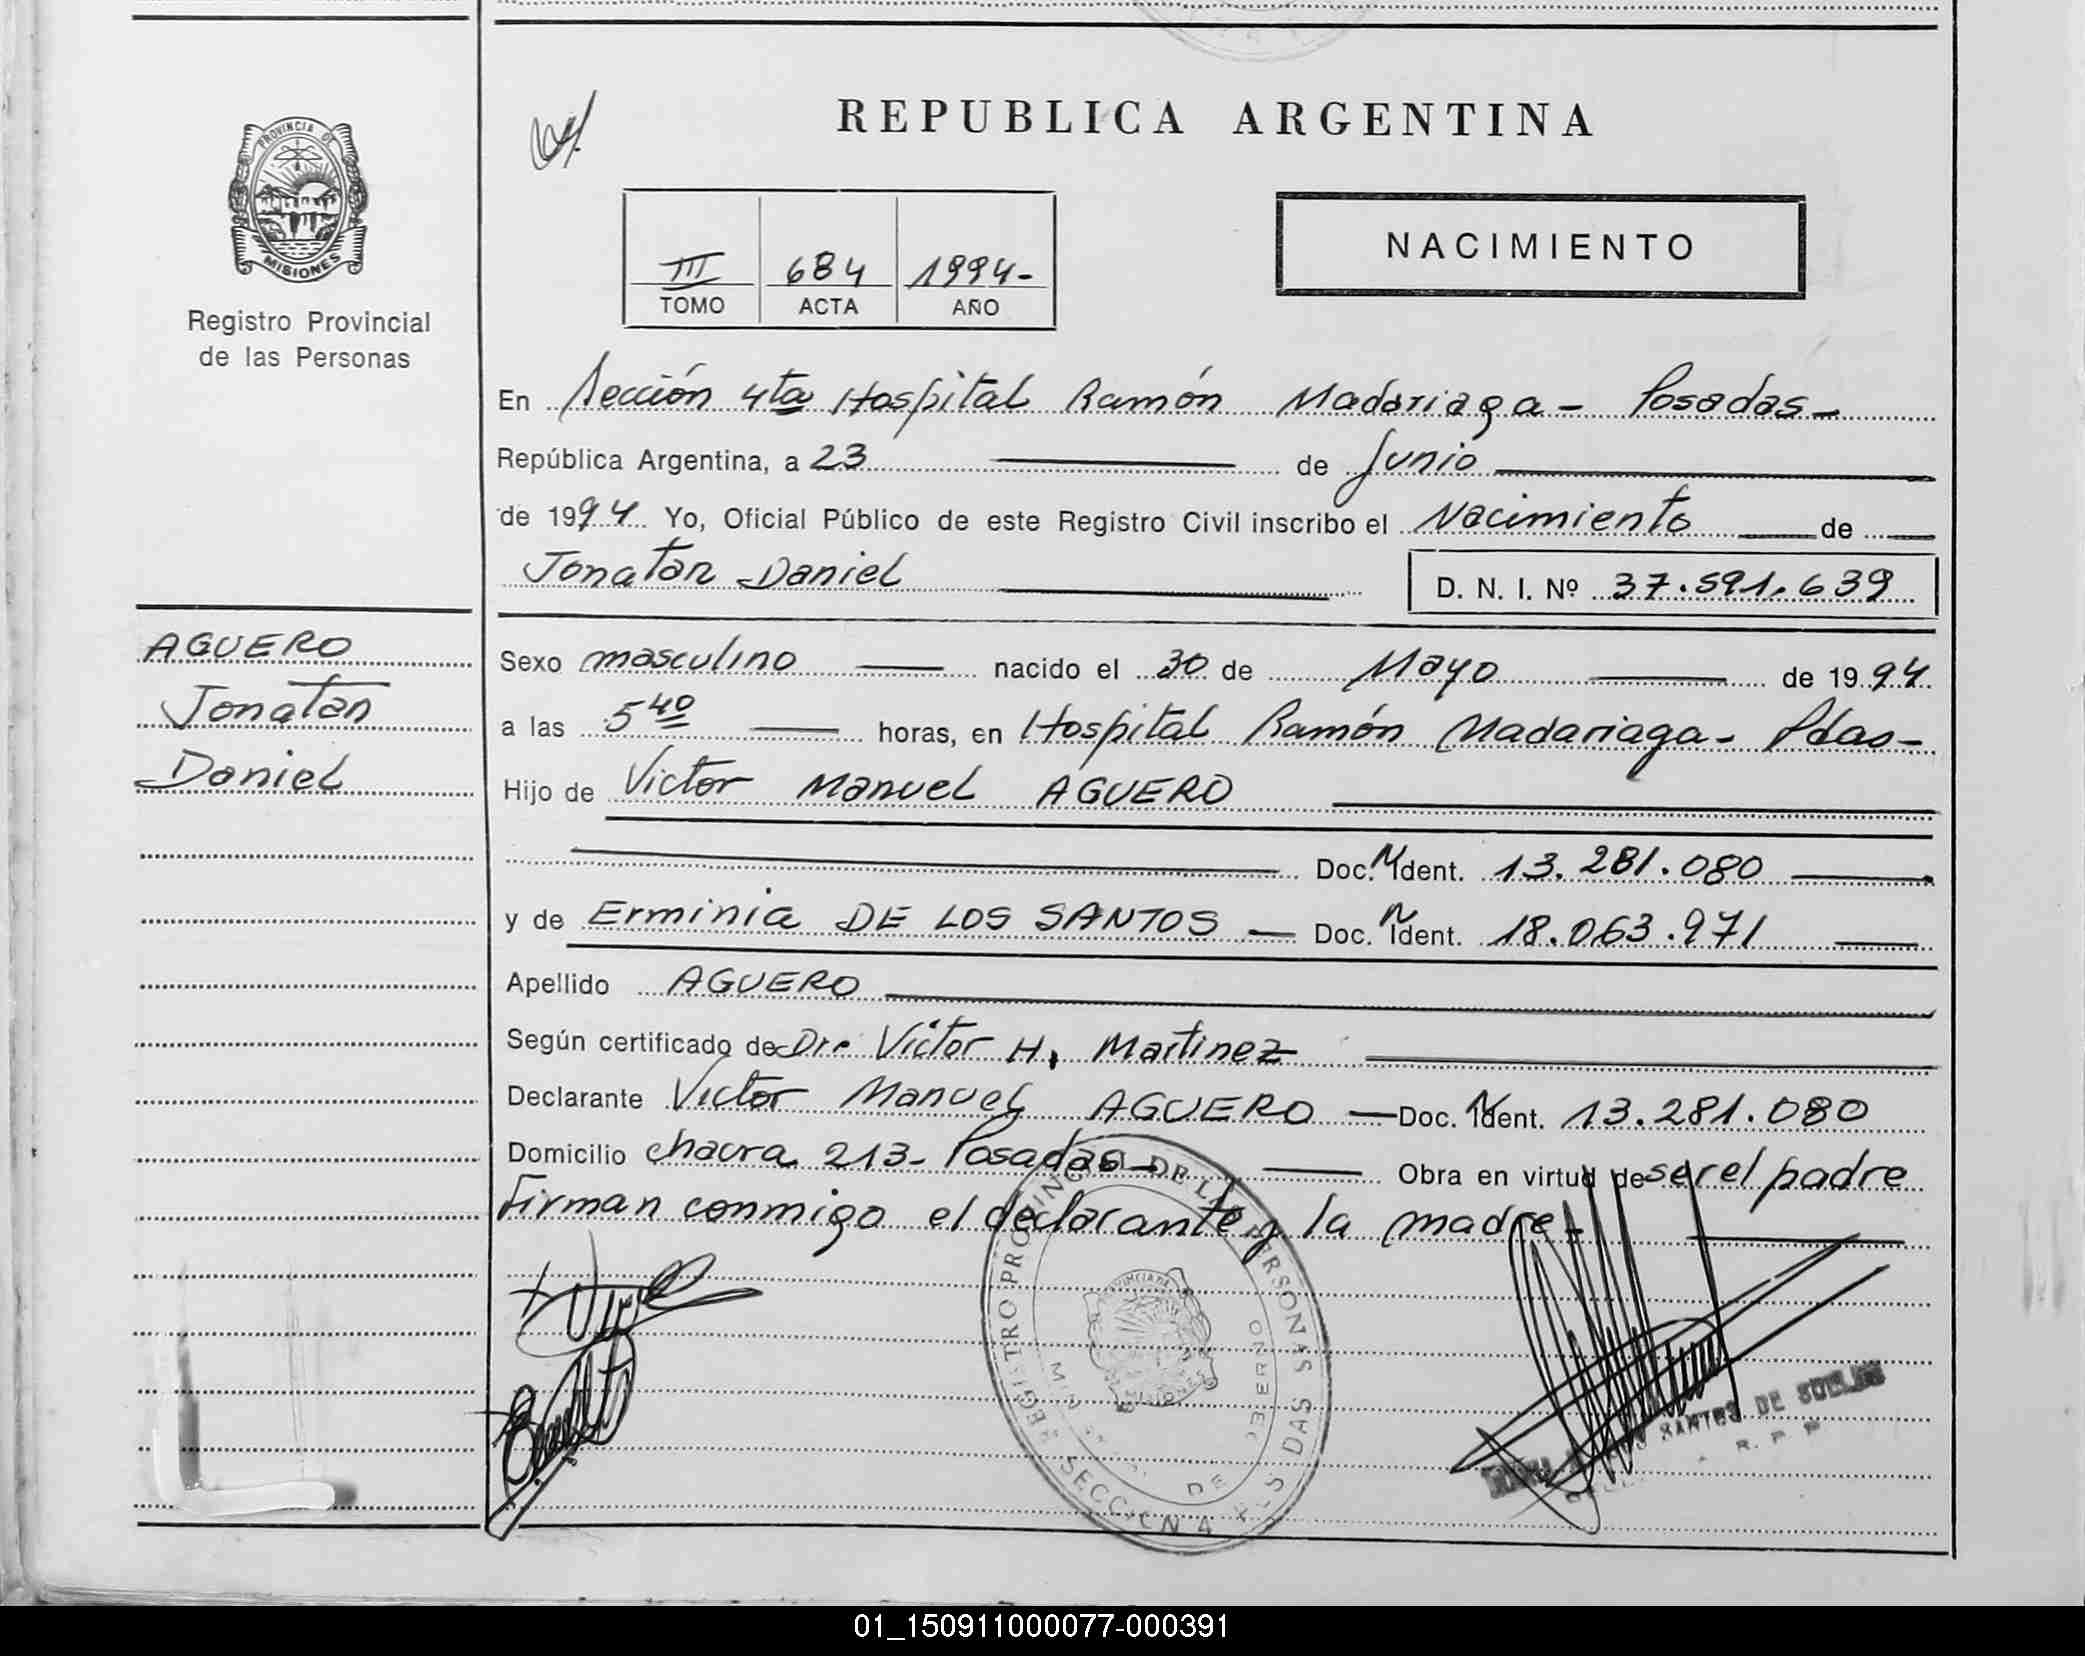 REPUBLICA ARGENTINA
PROVINCIA DE
MISIONES
Registro Provincial
de las Personas
III 684 1994-
TOMO ACTA AÑO
NACIMIENTO
En Sección 4ta Hospital Ramón Madariaga - Posadas -
República Argentina, a 23 de Junio
de 1994 Yo, Oficial Público de este Registro Civil inscribo el Nacimiento de
Jonatan Daniel D. N. I. Nº 37.591.639
AGUERO
Jonatan
Daniel
Sexo masculino nacido el 30 de Mayo de 1994
a las 5 40 horas, en Hospital Ramón Madariaga - Pdas -
Hijo de Victor Manuel AGUERO
Doc. N Ident. 13.281.080
y de Erminia DE LOS SANTOS Doc. N Ident. 18.063.971
Apellido AGUERO
Según certificado de Dr. Victor H. Martinez
Declarante Victor Manuel AGUERO Doc. N Ident. 13.281.080
Domicilio chacra 213 - Posadas - Obra en virtud de ser el padre
Firman conmigo el declarante y la madre -
REGISTRO PROVINCIAL DE LAS PERSONAS
SECCION 4
SANTOS DE
R. P. P.
01_150911000077-000391